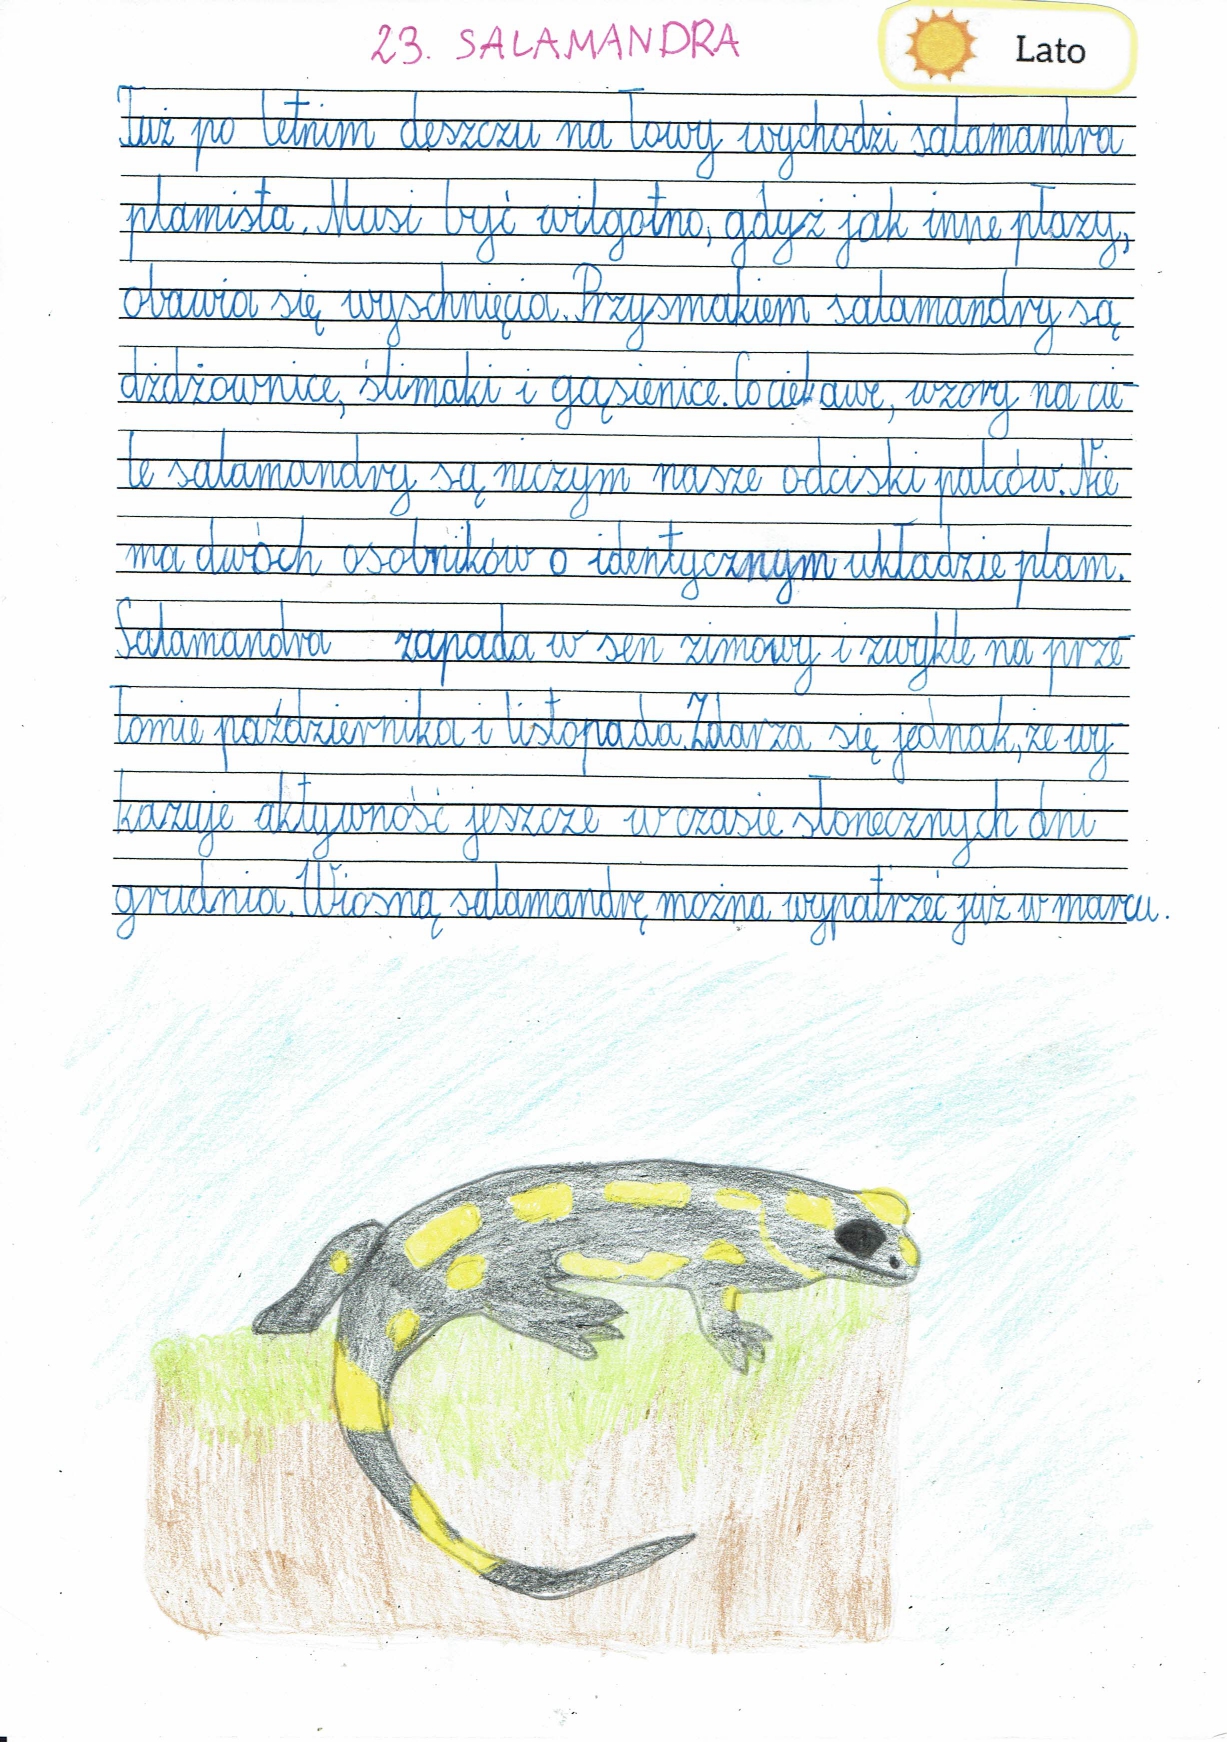 23. SALAMANDRA
Lato
Tuż po letnim deszczu na łowy wychodzi salamandra
plamista. Musi być wilgotno, gdyż jak inne płazy,
obawia się wyschnięcia. Przysmakiem salamandry są
dżdżownice, ślimaki i gąsienice. Co ciekawe, wzory na cie-
le salamandry są niczym nasze odciski palców. Nie
ma dwóch osobników o identycznym układzie plam.
Salamandra zapada w sen zimowy i zwykle na prze
łomie października i listopada. Zdarza się jednak, że wy
kazuje aktywność jeszcze w czasie słonecznych dni
grudnia. Wiosną salamandrę można wypatrzeć już w marcu.